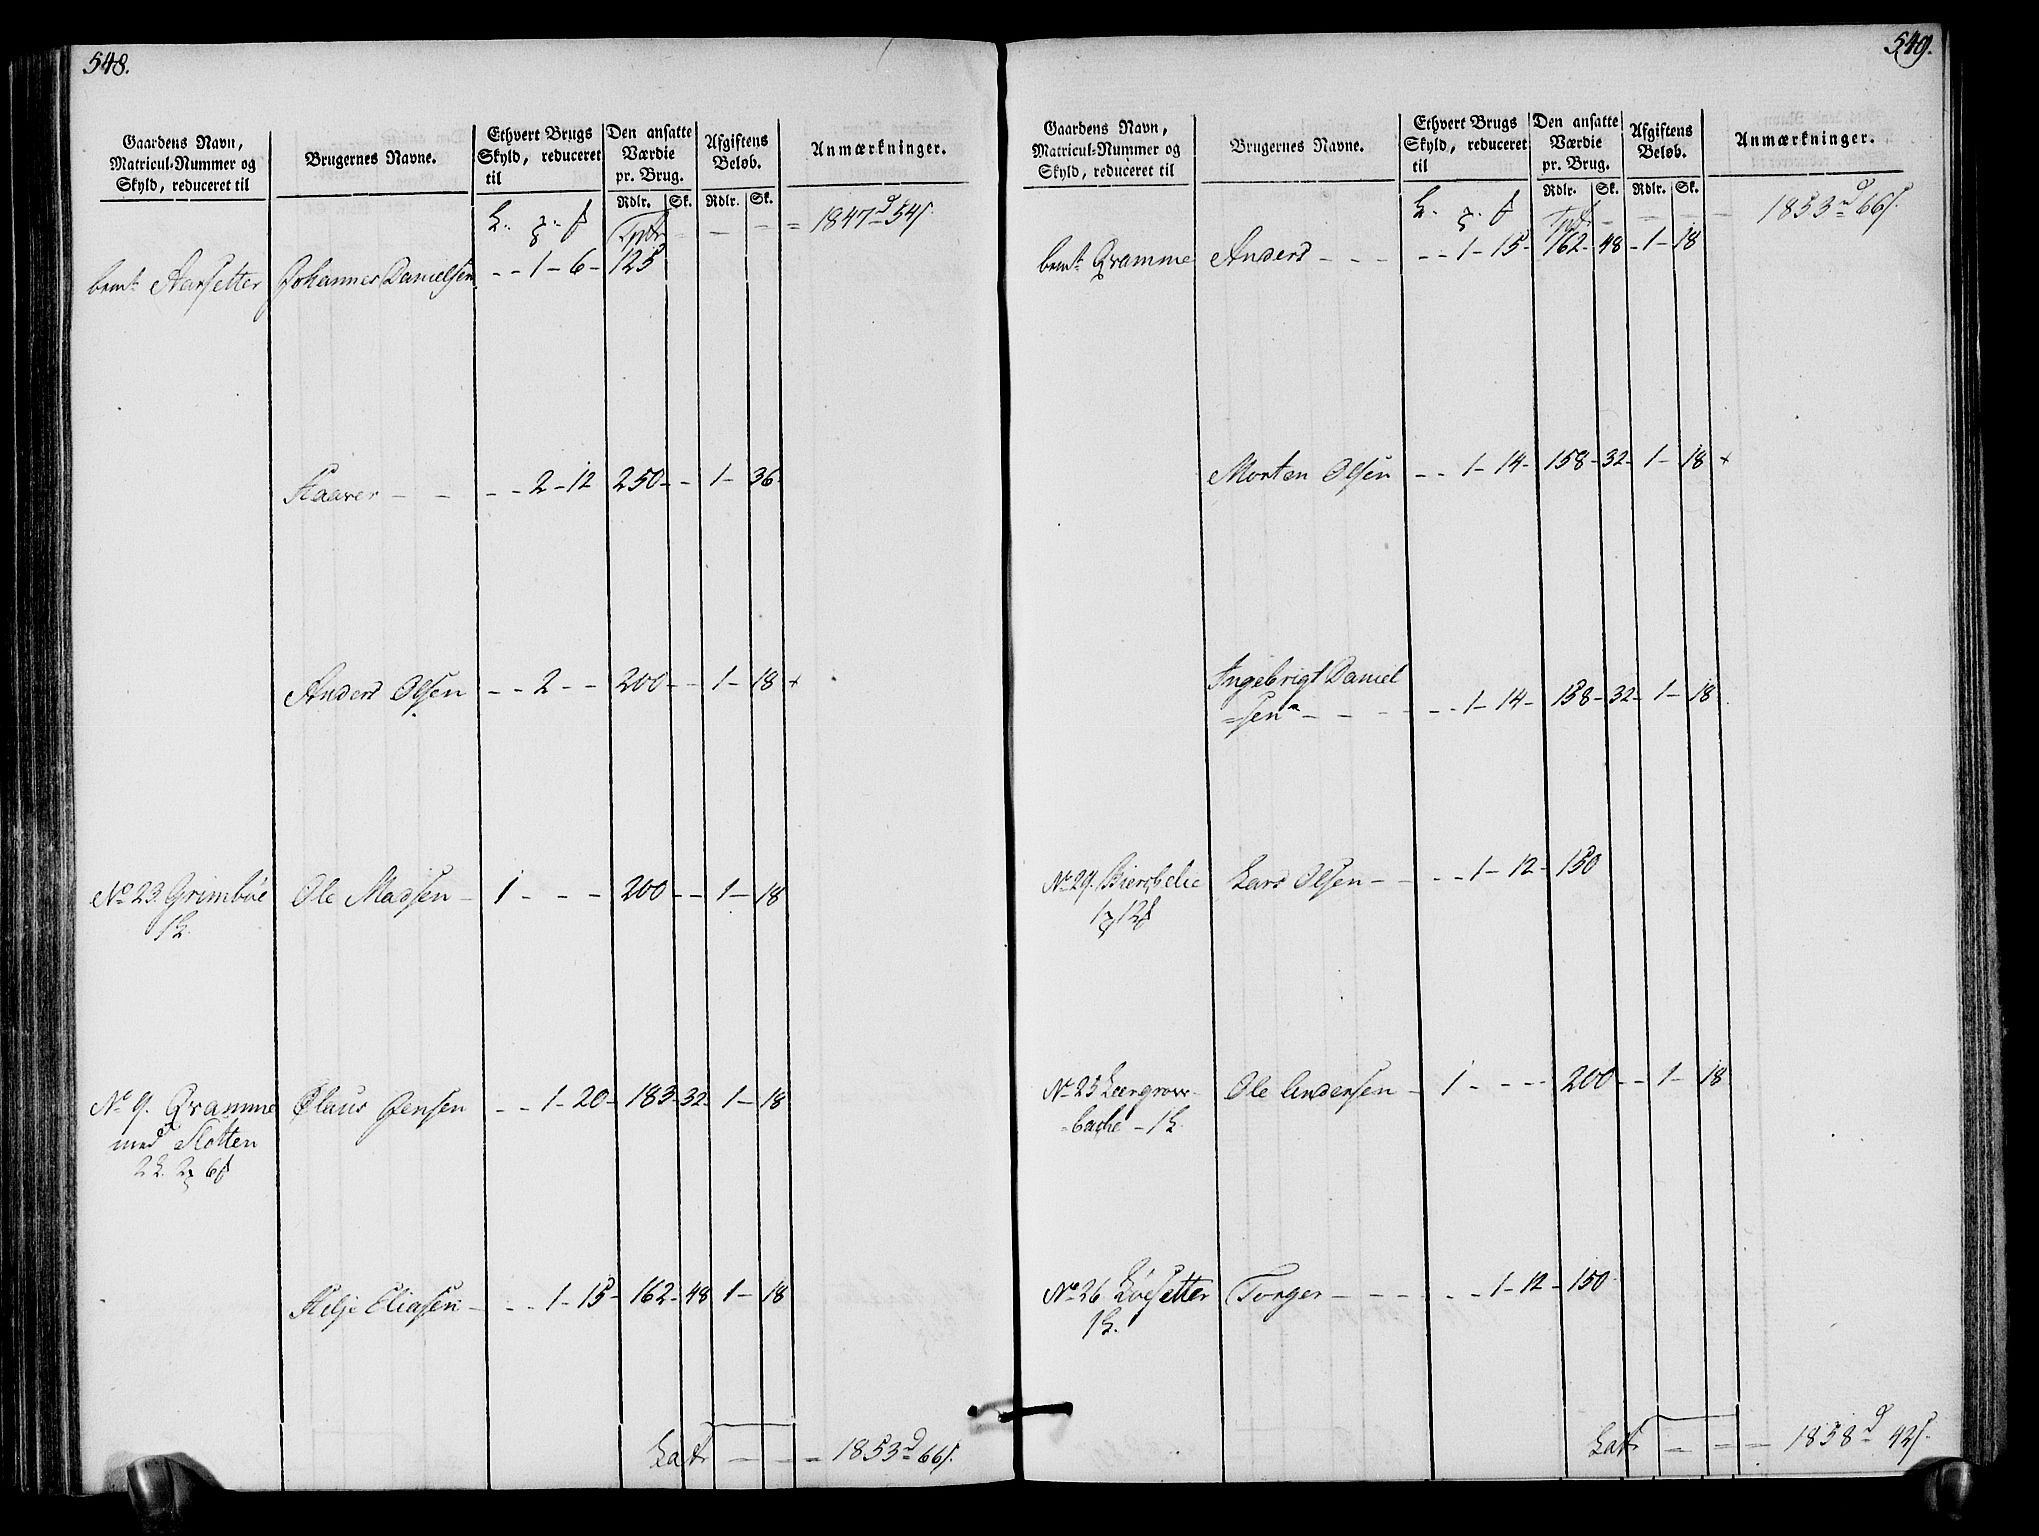 548.
Gaardens Navn,
Matricul-Nummer og
Skyld, reduceret til
Brugernes Navne.
Ethvert Brugs
Skyld, reduceret
til
Den ansatte
Værdie
pr. Brug.
Afgiftens
Beløb.
Anmærkninger.
Rdlr. Sk. Rdlr. Sk.
Tpt = 1847 d 54 s.
bemt Aarsetter Johannes Danielsen - - 1 - 6 - 125
- - 2 - 12 250 - - 1 - 36
Anders Olsen - - 2 - - 200 - - 1 - 18 +
No 23. Grimbøe Ole Madsen - 1 - - - 200 - - 1 - 18
No 9. Gramme Claus Jensen - - 1 - 20 - 183 - 32 - 1 - 18
med Slotten
Eliasen - - - 1 - 15 - 162 - 48 1 - 18
Latr - - - 1853 d 66 s.
549.
Gaardens Navn,
Matricul-Nummer og
Skyld, reduceret til
Brugernes Navne.
Ethvert Brugs
Skyld, reduceret
til
Den ansatte
Værdie
pr. Brug.
Afgiftens
Beløb.
Anmærkninger.
Rdlr. Sk. Rdlr. Sk.
Tpt - - - - 1853 d 66 s.
bemt Gramme Anders - - - - - 1 - 15 - 162 - 48 - 1 - 18
Morten Olsen - - 1 - 14 - 158 - 32 - 1 - 18 +
Ingebrigt Daniel
=sen - - - - - 1 - 14 - 158 - 32 - 1 - 18
No 29. Lars Olsen - - - - 1 - 12 - 150
No 25 Ole Andersen - 1 - - - - 200 - - 1 - 18
No 26 Løesetter Torger - - - - - - 1 - 12 - 150
Latr - - - 1858 d 42 s.